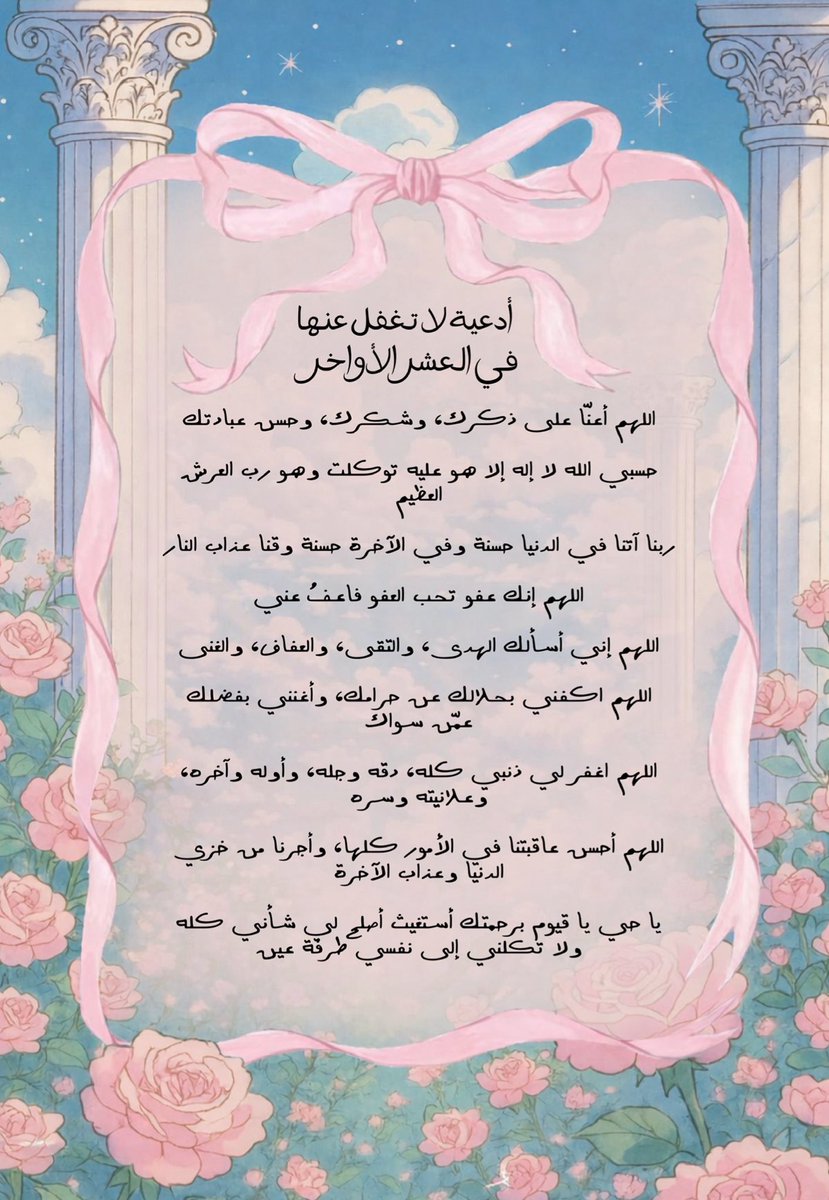 أدعية لا تغفل عنها
في العشر الأواخر
اللهم أعنّا على ذكرك، وشكرك، وحسن عبادتك
حسبي الله لا إله إلا هو عليه توكلت وهو رب العرش
العظيم
ربنا آتنا في الدنيا حسنة وفي الآخرة حسنة وقنا عذاب النار
اللهم إنك عفو تحب العفو فاعفُ عني
اللهم إني أسألك الهدى، والتقى، والعفاف، والغنى
اللهم اكفني بحلالك عن حرامك، وأغنني بفضلك
عمّن سواك
اللهم اغفر لي ذنبي كله، دقه وجله، وأوله وآخره،
وعلانيته وسره
اللهم أحسن عاقبتنا في الأمور كلها، وأجرنا من خزي
الدنيا وعذاب الآخرة
يا حي يا قيوم برحمتك أستغيث أصلح لي شأني كله
ولا تكلني إلى نفسي طرفة عين